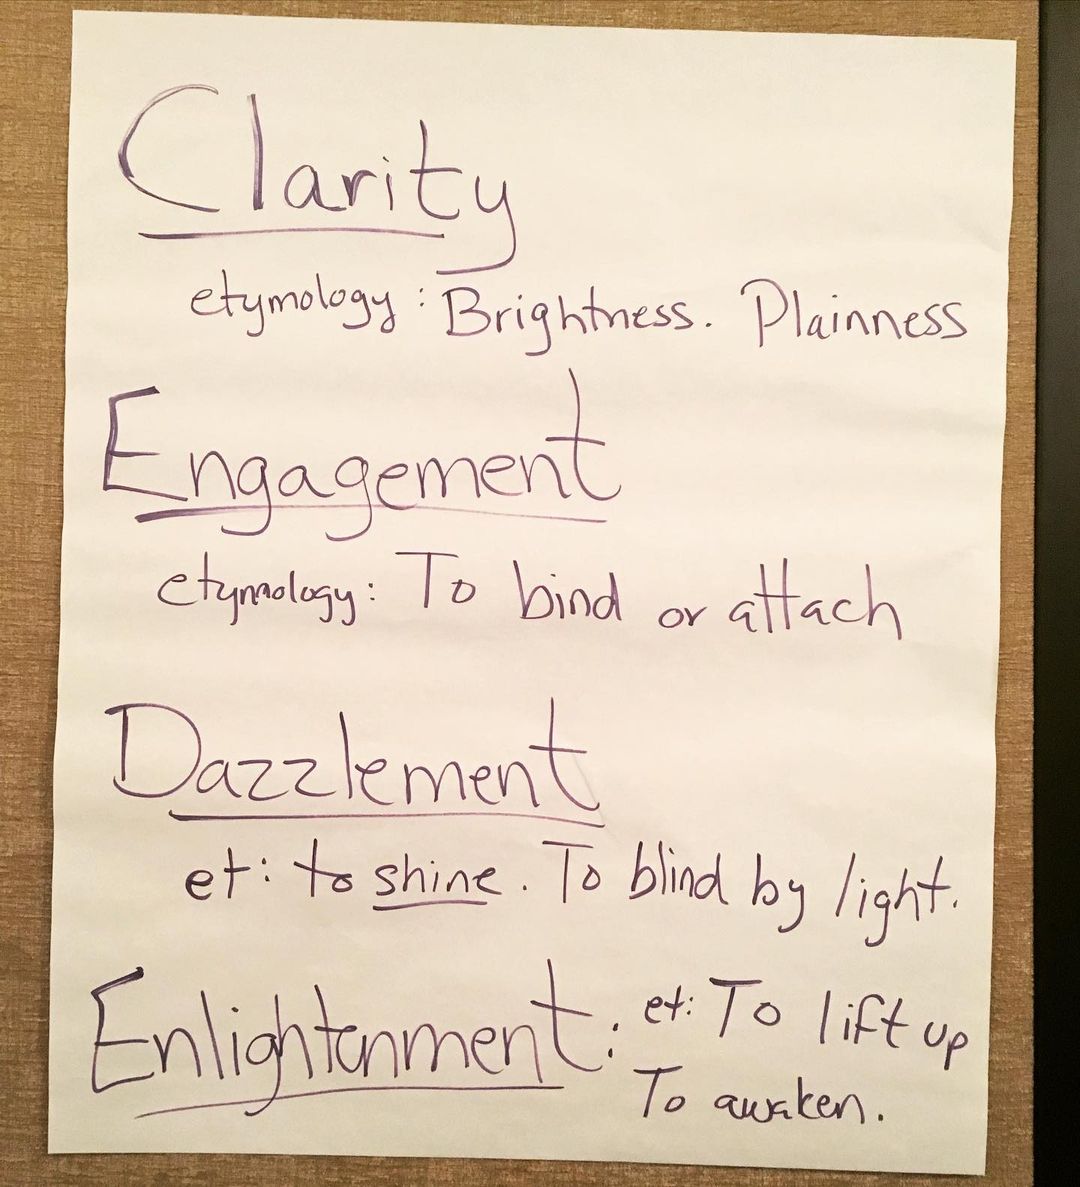 Clarity
etymology: Brightness. Plainness
Engagement
etymology: To bind or attach
Dazzlement
et: to shine. To blind by light.
Enlightenment: et: To lift up
To awaken.